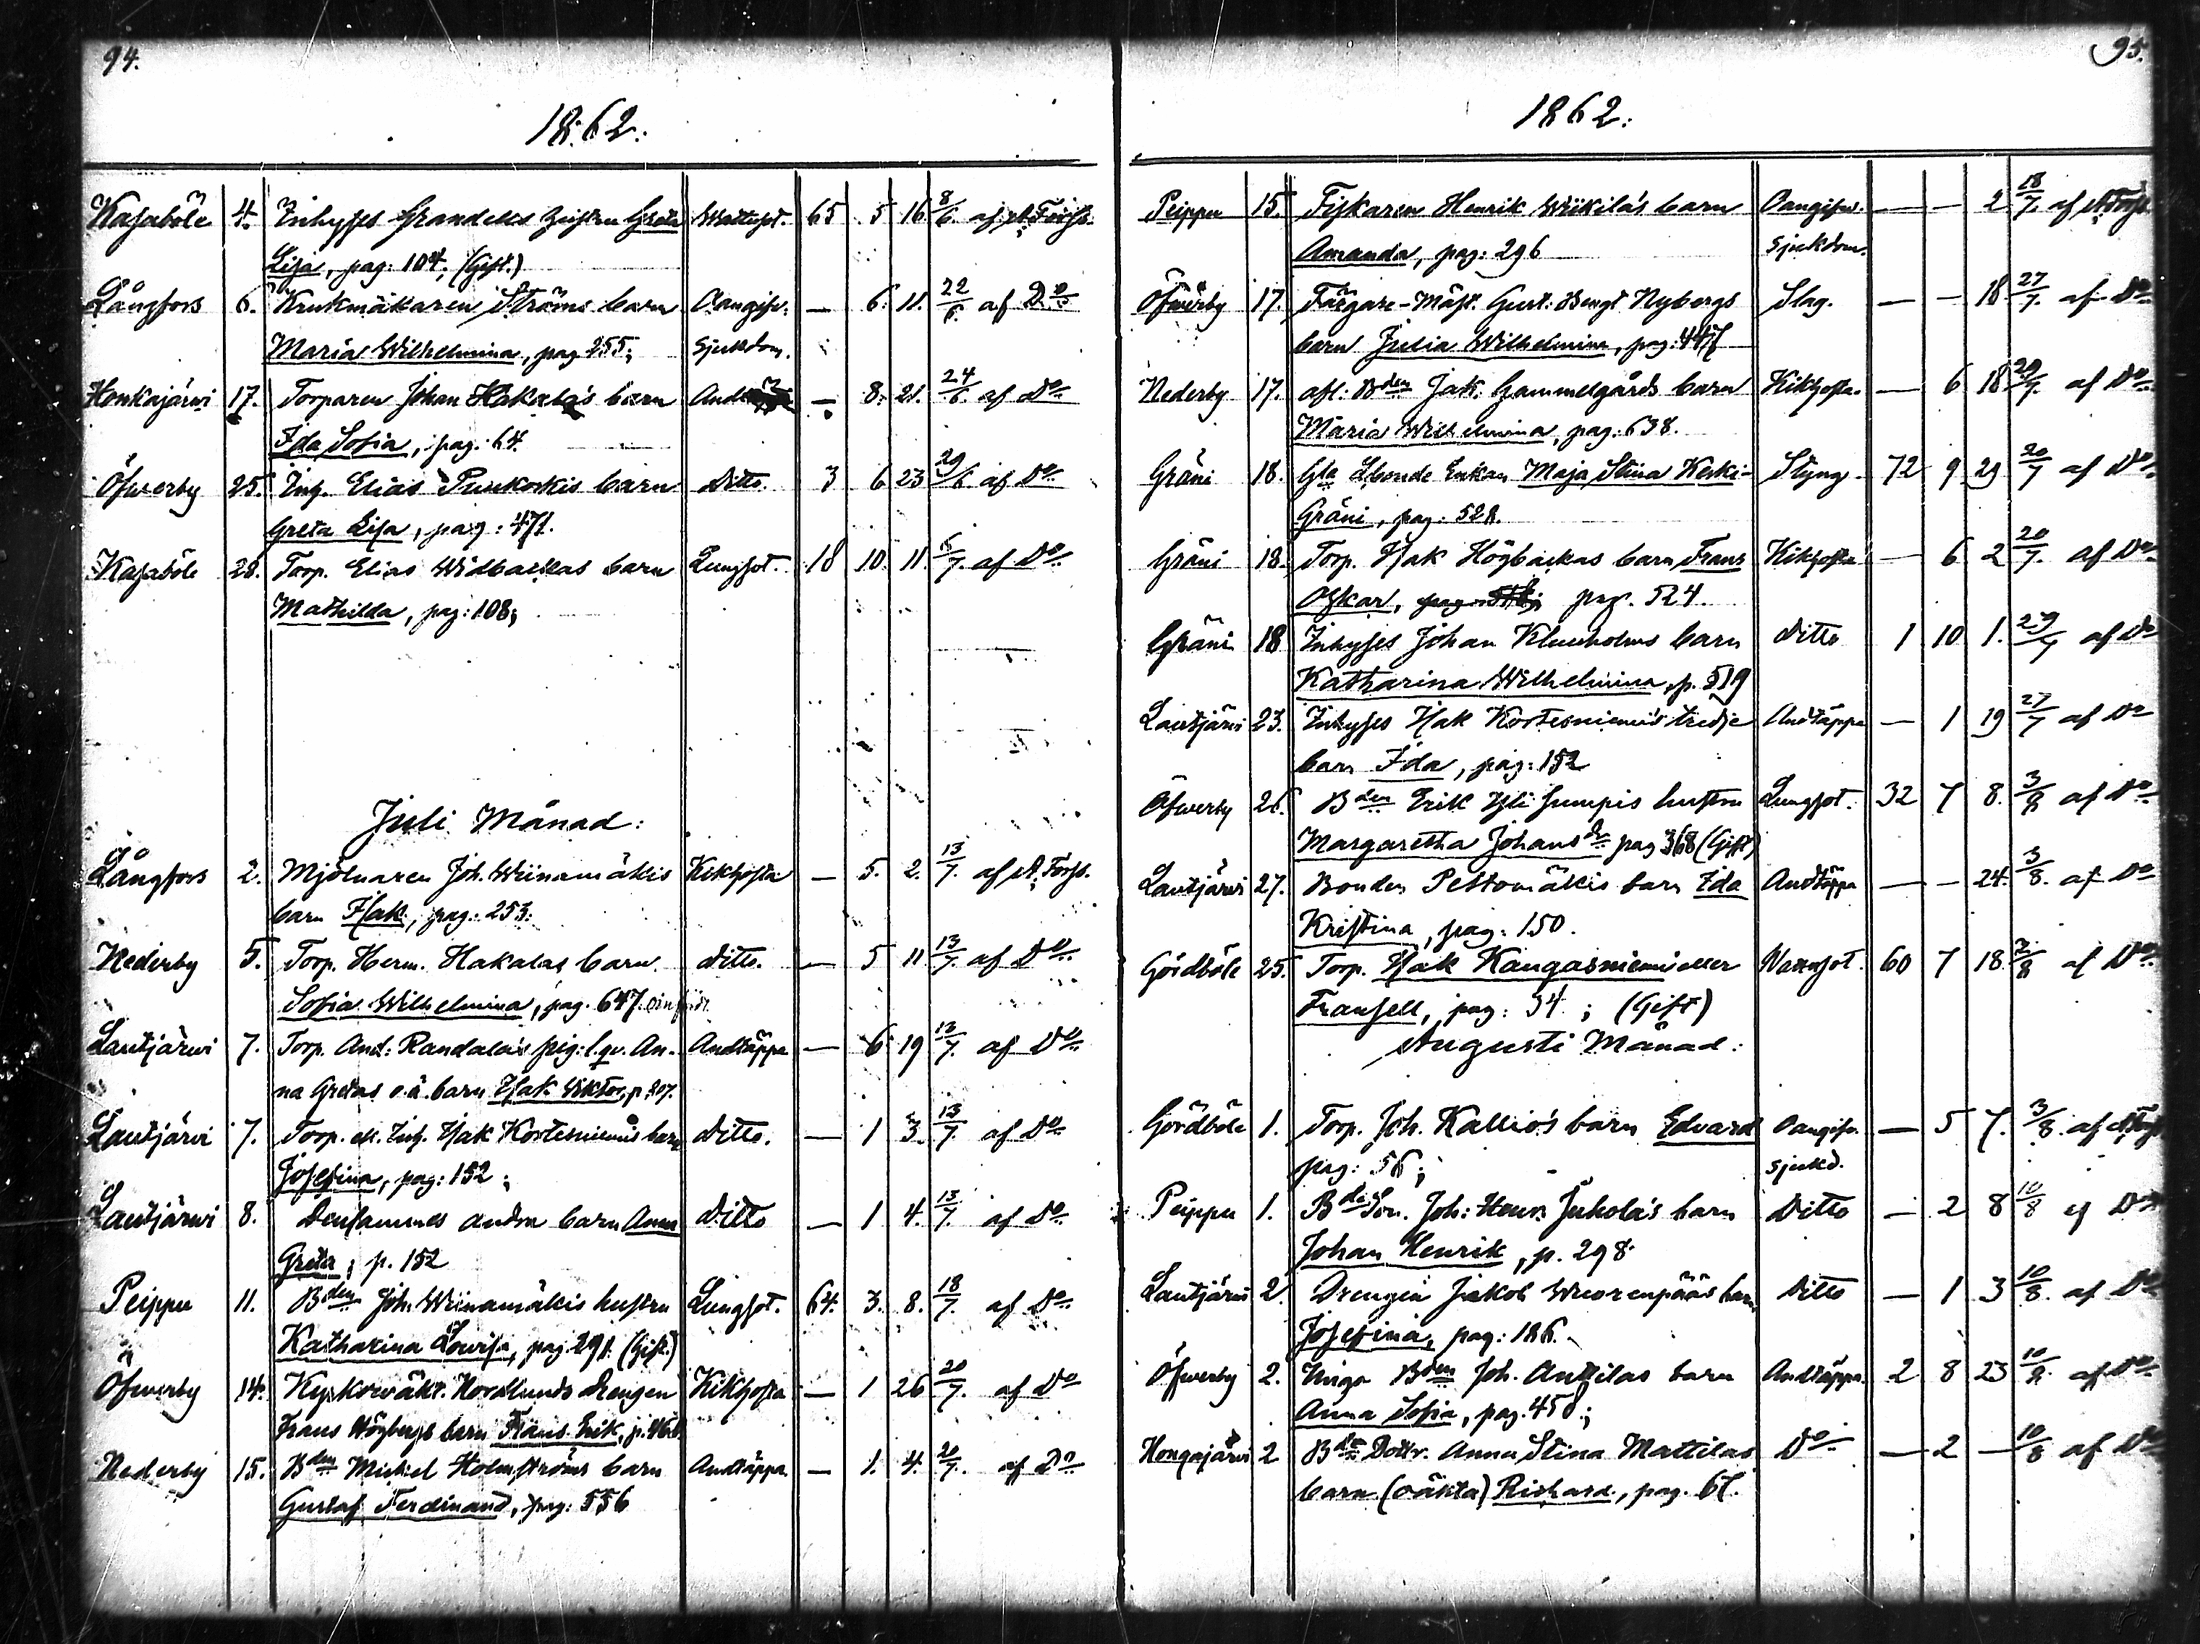 94.
1862.
Kasaböle 4. Inhyses Grandells hustru Greta Wattusot. 65 5 16 8/6. af A. Forss.
Lisa, pag: 104; (Gift.)
Långfors 6. Krukmakaren Ströms barn Oangifv. — 6. 11. 22/6. af Do
Maria Wilhelmina, pag 255; sjukdom.
Honkajärvi 17. Torparen Johan Hakala's barn — 8. 21. 24/6. af Do
Ida Sofia, pag: 64.
Öfwerby 25. Inh. Elias Puukoskis barn Ditto. 3 6 23 29/6. af Do
Greta Lisa, pag: 471.
Kasaböle 28. Torp. Elias Widbackas barn Lungsot. 18 10. 11. 6/7. af Do
Mathilda, pag: 108;
Juli Månad:
Långfors 2. Mjölnaren Joh. Wiinamäkis Kikhosta — 5. 2. 13/7. af A. Forss.
barn Isak, pag: 253.
Nederby 5. Torp. Herm. Hakalas barn ditto. — 5 11 13/7. af Do
Sofia Wilhelmina, pag. 647.
Lautjärwi 7. Torp. And: Randala's pig: l. qv. An- Andtäppa — 6 19 13/7. af Do
na Gretas o.ä. barn Isak Wiktor, p.
Lautjärvi 7. Torp. el. Inh. Isak Kortesniemis barn ditto. — 1 3. 13/7. af Do
Josefina, pag: 152;
Lautjärwi 8. Densammes andra barn Anna ditto — 1 4. 13/7. af Do
Greta, p. 152
Peippu 11. Bden Joh. Wiinamäkis hustru Lungsot. 64. 3. 8. 18/7. af Do
Katharina Lowisa, pag 291. (Gift.)
Öfwerby 14. Kyrkowäkt. Nordlunds drengen Kikhosta — 1 26 20/7. af Do
Frans Högbergs barn Frans Erik, p.
Nederby 15. Bden Mickel Holmströms barn Andtäppa — 1. 4. 20/7. af Do
Gustaf Ferdinand, pag: 556
95.
1862.
Peippu 15. Fiskaren Henrik Wiikilä's barn Oangifw. — — 2 18/7. af A. Forss
Amanda, pag: 296 sjukdom.
Öfwerby 17. Färgare-Mäst. Gust: Bengt Nybergs Slag. — — 18 27/7. af Do
barn Julia Wilhelmina, pag: 447
Nederby 17. afl: Bden Jak. Gammelgårds barn Kikhosta. — 6 18 20/7. af Do
Maria Wilhelmina, pag: 638.
Gräni 18. Gla Lbonde Enkan Maja Stina Keski- Styng 72 9 29 20/7 af Do
Gräni, pag: 528.
Gräni 18. Torp. Isak Högbackas barn Frans Kikhosta — 6 2 20/7. af Do
Oskar, pag. 524.
Gräni 18 Inhyses Johan Klemholms barn ditto 1 10 1. 27/7 af Do
Katharina Wilhelmina, p. 519
Lautjärvi 23. Inhyses Isak Kortesniemi's tredje Andtäppa — 1 19 27/7 af Do
barn Ida, pag: 152
Öfwerby 26. Bden Erik Yli Jumpis hustru Lungsot. 32 7 8. 3/8 af Do
Margaretha Johansdr pag 368 (Gift)
Lautjärwi 27. Bonden Peltomäkis barn Ida Andtäppa — — 24. 3/8. af Do
Kristina, pag: 150.
Gördböle 25. Torp. Isak Kangasniemi eller Wattusot. 60 7 18. 3/8 af Do
Fransell, pag: 34.; (Gift)
Augusti Månad:
Gördböle 1. Torp. Joh. Kallio's barn Edvard Oangifv. — 5 7. 3/8. af A. Forss
pag: 56; sjukd.
Peippu 1. Bde Son. Joh: Henr. Juhola's barn Ditto — 2 8 10/8 af Do
Johan Henrik, p. 298.
Lautjärvi 2. Drengen Jakob Wuorenpää's barn ditto — 1 3 10/8. af Do
Josefina, pag: 186.
Öfwerby 2. Unga Bden Joh. Anttilas barn Andtäppa. 2 8 23 10/8. af Do
Anna Sofia, pag. 458;
Hongajärvi 2 Bde Dottr. Anna Stina Mattilas Do — 2 — 10/8 af Do
barn (oäkta) Richard, pag. 67.